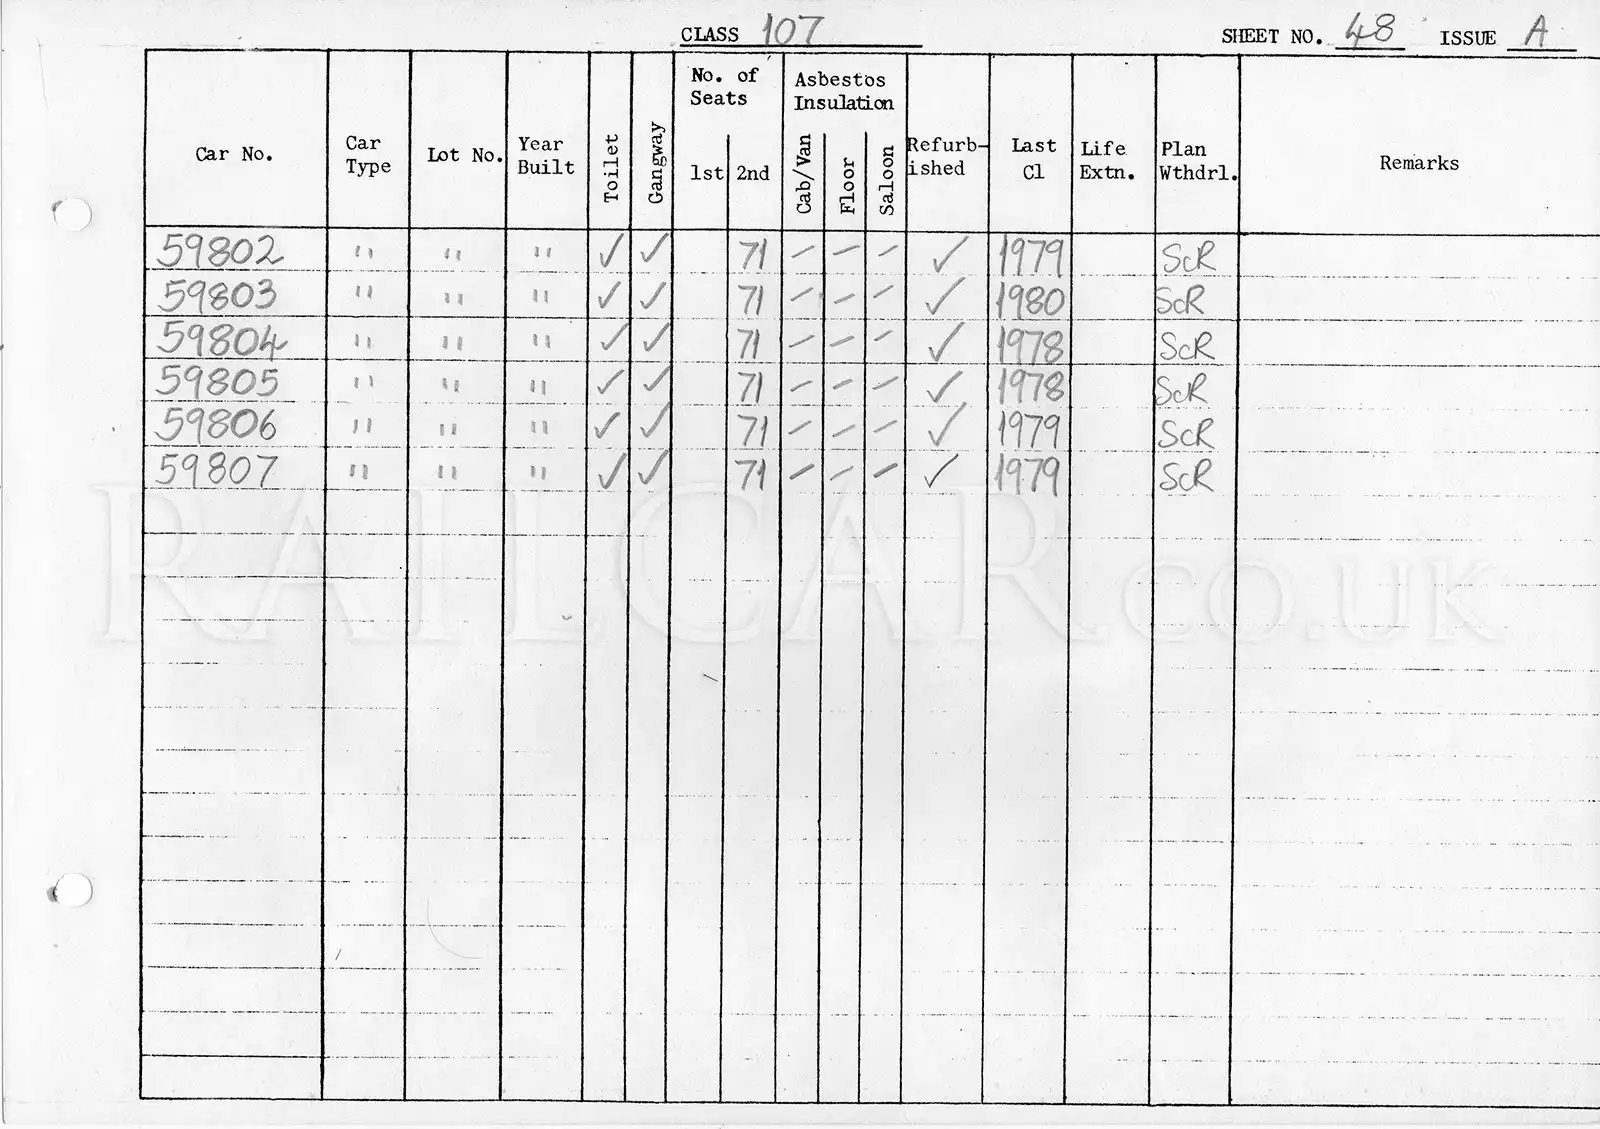 CLASS 107 SHEET NO. 48 ISSUE A
Car No. Car Type Lot No. Year Built Toilet Gangway No. of Seats 1st 2nd Asbestos Insulation Cab/Van Floor Saloon Refurb-ished Last Cl Life Extn. Plan Wthdrl. Remarks
59802 " " " ✓ ✓ 71 – – – ✓ 1979 ScR
59803 " " " ✓ ✓ 71 – – – ✓ 1980 ScR
59804 " " " ✓ ✓ 71 – – – ✓ 1978 ScR
59805 " " " ✓ ✓ 71 – – – ✓ 1978 ScR
59806 " " " ✓ ✓ 71 – – – ✓ 1979 ScR
59807 " " " ✓ ✓ 71 – – – ✓ 1979 ScR
RAILCAR.CO.UK